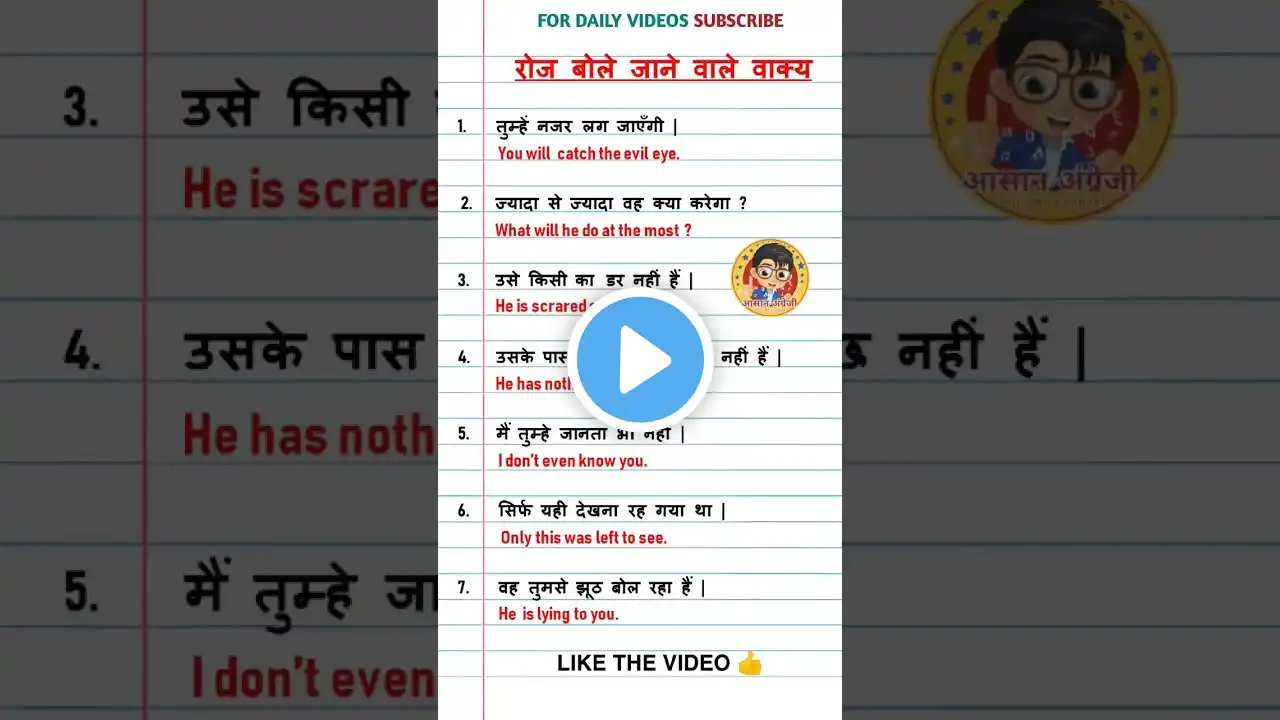 FOR DAILY VIDEOS SUBSCRIBE
रोज बोले जाने वाले वाक्य
1. तुम्हें नजर लग जाएँगी |
You will catch the evil eye.
2. ज्यादा से ज्यादा वह क्या करेगा ?
What will he do at the most ?
3. उसे किसी का डर नहीं हैं |
He is scrared
आसान अंग्रेजी
4. उसके पास नहीं हैं |
He has
5. मैं तुम्हे जानता भी नहीं |
I don't even know you.
6. सिर्फ यही देखना रह गया था |
Only this was left to see.
7. वह तुमसे झूठ बोल रहा हैं |
He is lying to you.
LIKE THE VIDEO
3. उसे किसी
He is scrared
4. उसके पास
नहीं हैं |
He has
5. मैं तुम्हे
I don't even
आसान अंग्रेजी